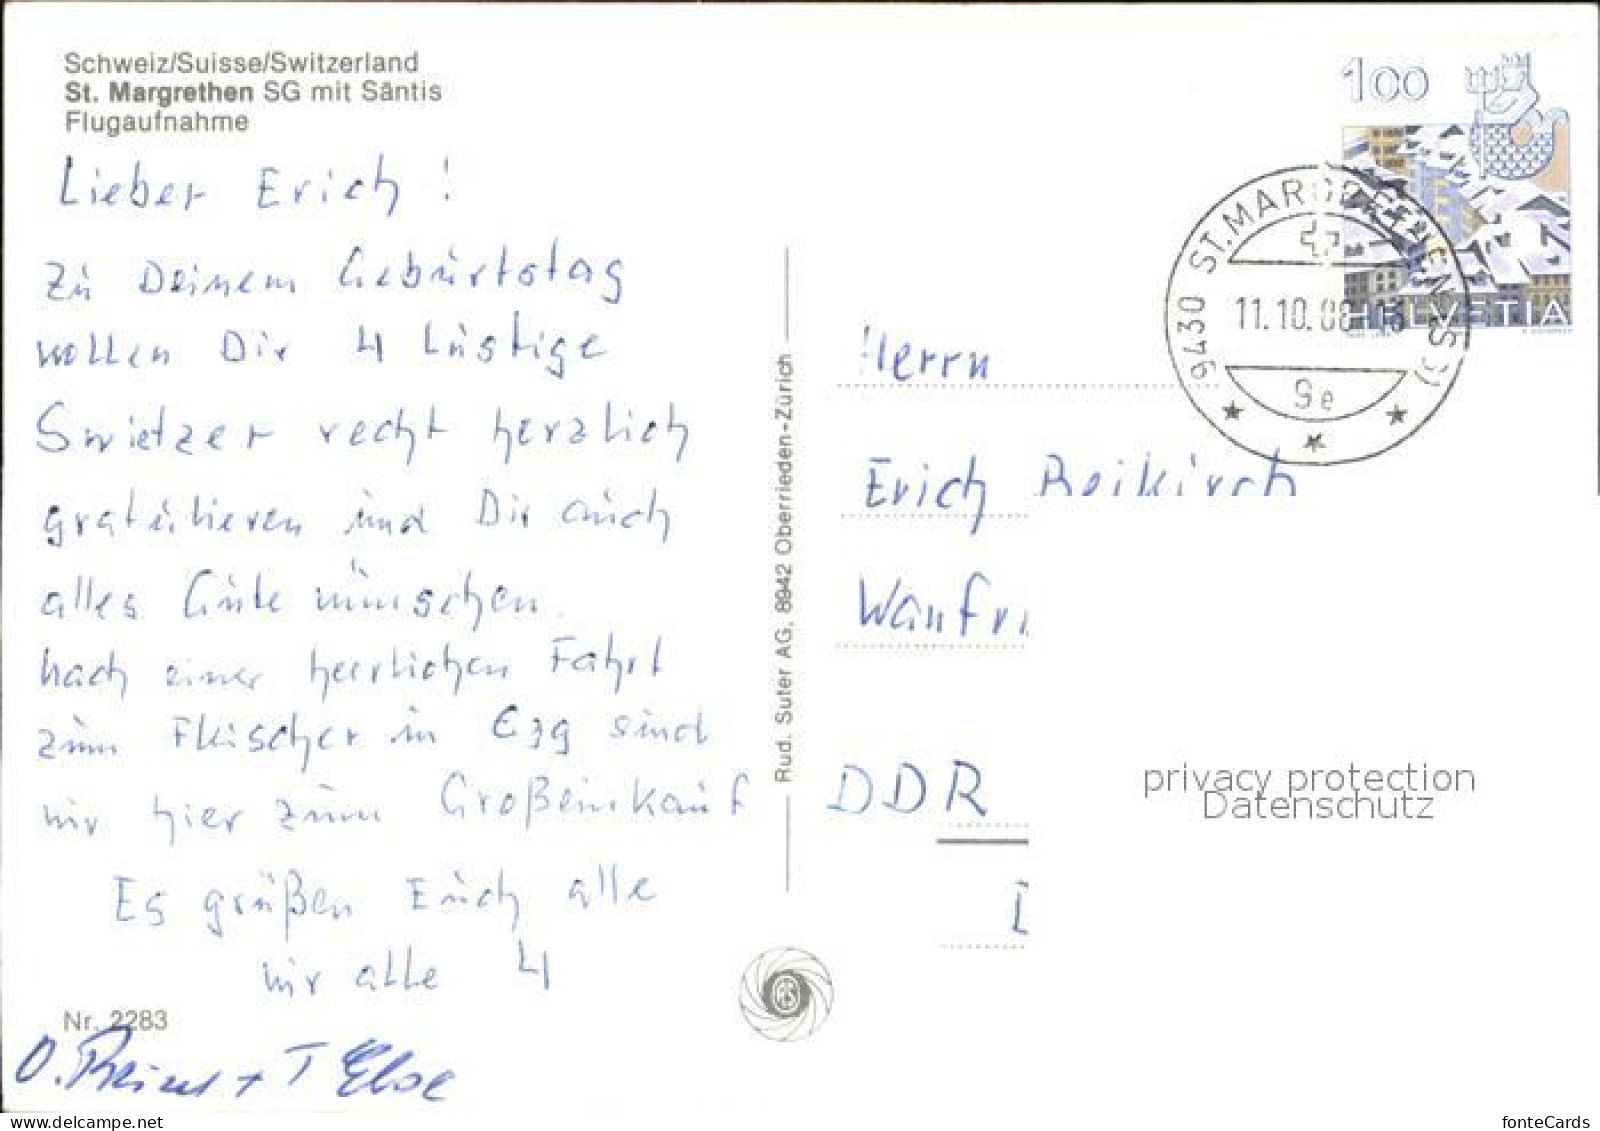 Schweiz/Suisse/Switzerland
St. Margrethen SG mit Säntis
Flugaufnahme
Lieber Erich!
Zu Deinem Geburtstag
wollen Dir 4 Lustige
Swietzer recht herzlich
gratulieren und Dir auch
alles Gute wünschen.
Nach einer herrlichen Fahrt
zum Fleischer in Egg sind
wir hier zum Großeinkauf
Es grüßen Euch alle
wir alle 4
Nr. 2283
O. + T Else
Rud. Suter AG, 8942 Oberrieden-Zürich
100
HELVETIA
9430 ST. MARGRETHEN SG
11.10.88
9e
Herrn
Erich Reikirch
Wanfri
DDR
privacy protection
Datenschutz
www.delcampe.net
fonteCards